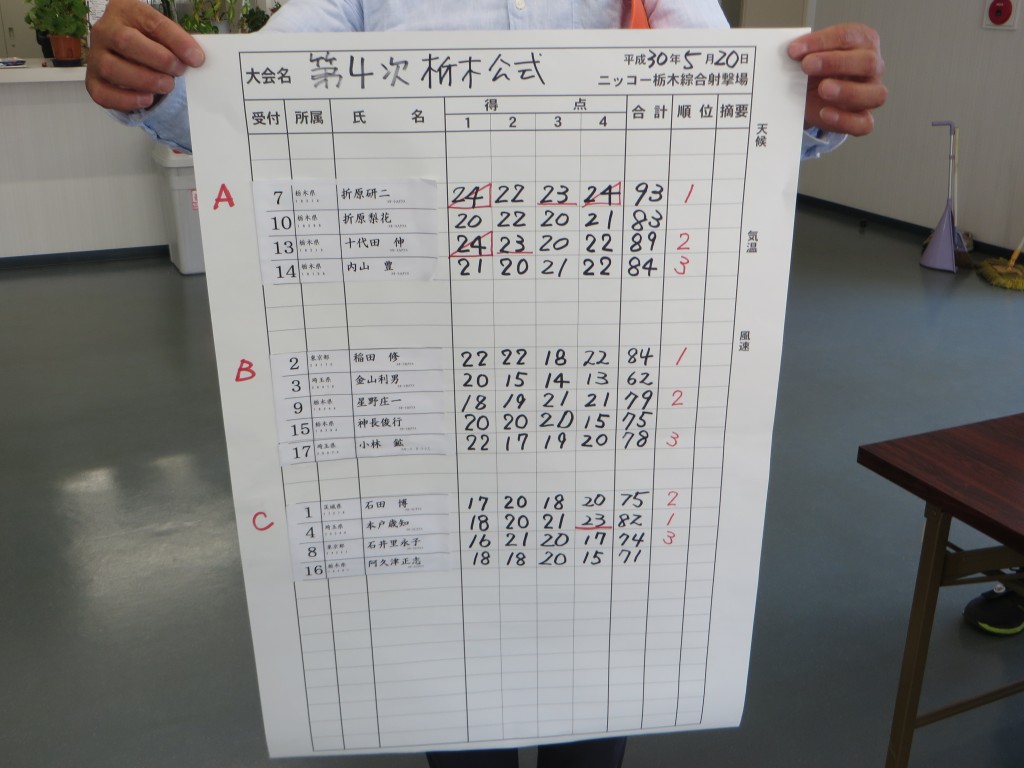 大会名 第4次 栃木公式 平成30年5月20日
ニッコー栃木綜合射撃場
受付 所属 氏 名 得 点 合計 順位 摘要
1 2 3 4
天候
気温
風速
A
7 栃木県 折原研二 24 22 23 24 93 1
10 栃木県 折原梨花 20 22 20 21 83
13 栃木県 十代田 伸 24 23 20 22 89 2
14 栃木県 内山 豊 21 20 21 22 84 3
B
2 東京都 稲田 修 22 22 18 22 84 1
3 埼玉県 金山利男 20 15 14 13 62
9 栃木県 星野庄一 18 19 21 21 79 2
15 栃木県 神長俊行 20 20 20 15 75
17 埼玉県 小林 鉱 22 17 19 20 78 3
C
1 茨城県 石田 博 17 20 18 20 75 2
4 埼玉県 木戸歳知 18 20 21 23 82 1
8 東京都 石井里永子 16 21 20 17 74 3
16 栃木県 阿久津正志 18 18 20 15 71